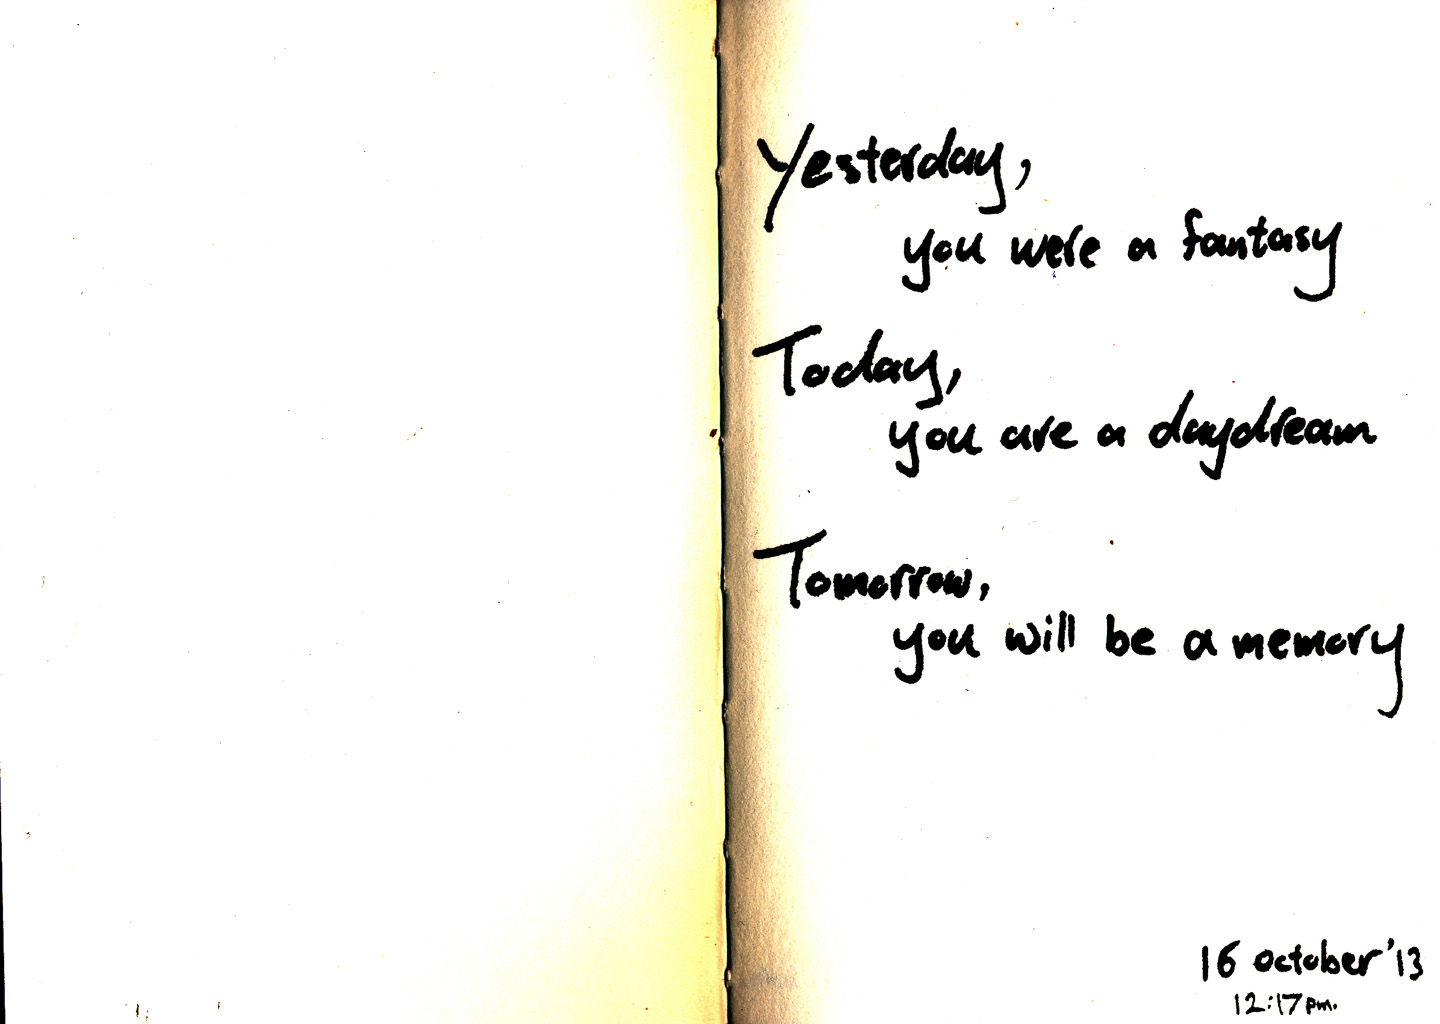 Yesterday,
you were a fantasy
Today,
you are a daydream
Tomorrow,
you will be a memory
16 october '13
12:17pm.